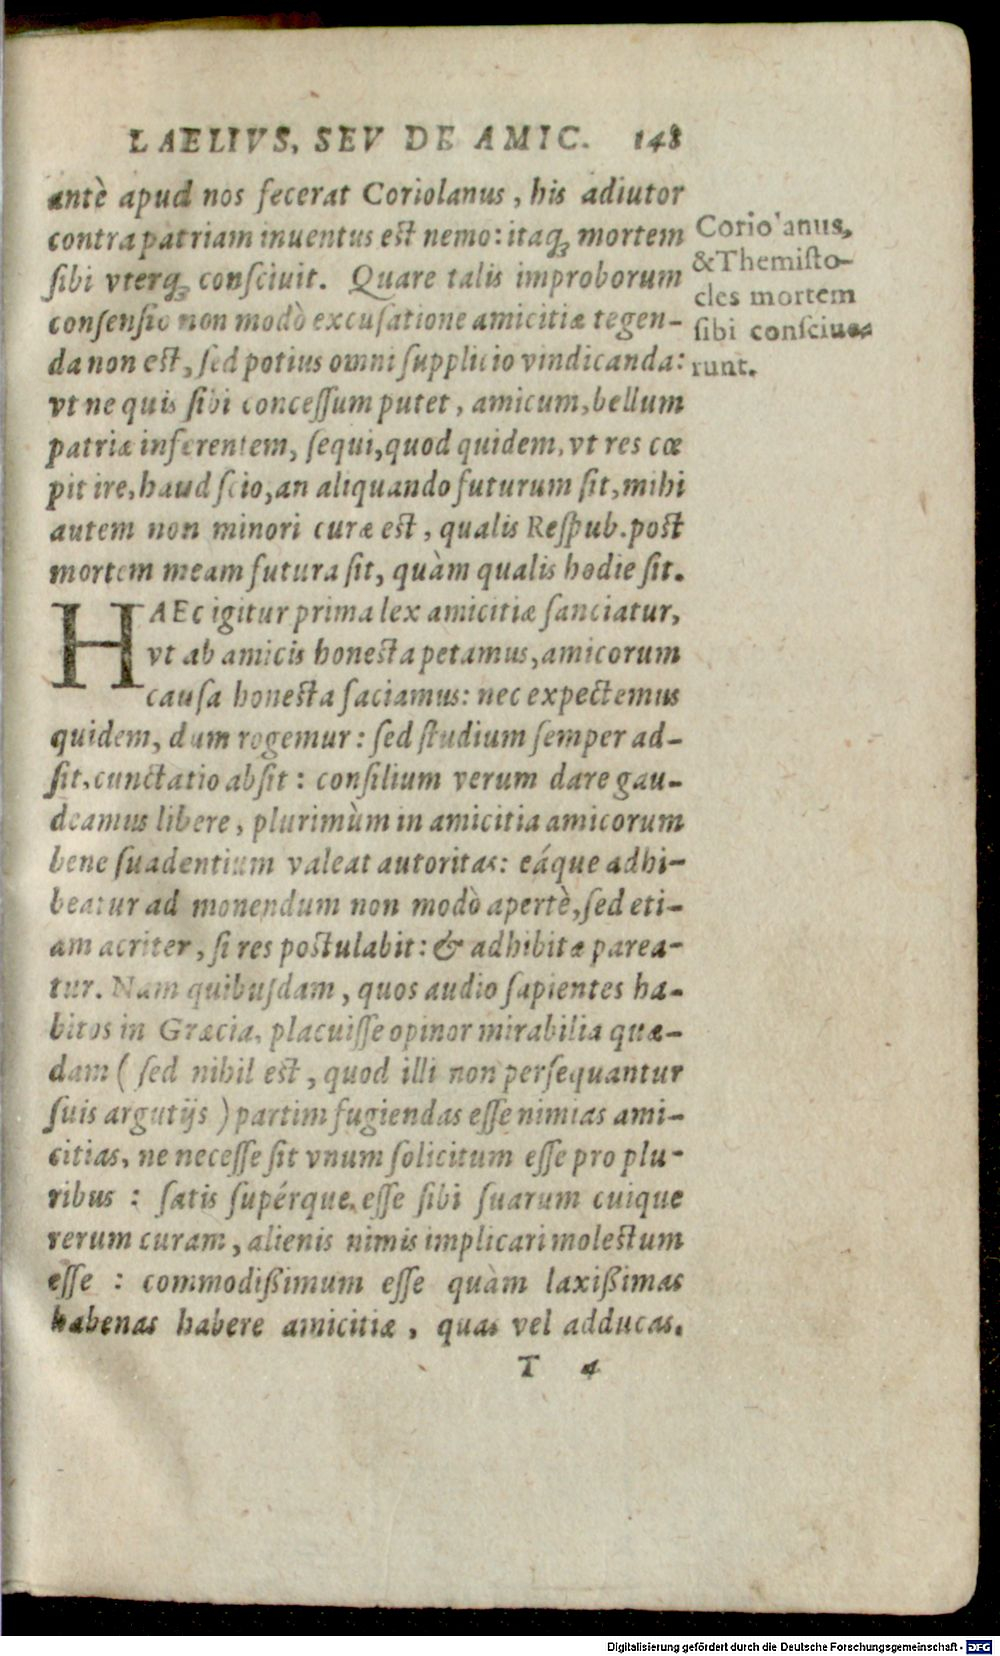 LAELIVS, SEV DE AMIC. 148
antè apud nos fecerat Coriolanus, his adiutor
contra patriam inuentus est nemo: itaq; mortem
sibi vterq; consciuit. Quare talis improborum
consensio non modò excusatione amicitiæ tegen-
da non est, sed potius omni supplicio vindicanda:
vt ne quis sibi concessum putet, amicum, bellum
patriæ inferentem, sequi, quod quidem, vt res cœ
pit ire, haud scio, an aliquando futurum sit, mihi
autem non minori curæ est, qualis Respub. post
mortem meam futura sit, quàm qualis hodie sit.
Corio'anus,
& Themisto-
cles mortem
sibi consciue-
runt.
HAEc igitur prima lex amicitiæ sanciatur,
vt ab amicis honesta petamus, amicorum
causa honesta faciamus: nec expectemus
quidem, dum rogemur: sed studium semper ad-
sit, cunctatio absit: consilium verum dare gau-
deamus libere, plurimùm in amicitia amicorum
bene suadentium valeat autoritas: eáque adhi-
beatur ad monendum non modò apertè, sed eti-
am acriter, si res postulabit: & adhibitæ parea-
tur. Nam quibusdam, quos audio sapientes ha-
bitos in Græcia, placuisse opinor mirabilia quæ-
dam ( sed nihil est, quod illi non persequantur
suis argutijs ) partim fugiendas esse nimias ami-
citias, ne necesse sit vnum solicitum esse pro plu-
ribus : satis supérque esse sibi suarum cuique
rerum curam, alienis nimis implicari molestum
esse : commodißimum esse quàm laxißimas
habenas habere amicitiæ, quas vel adducas,
T 4
Digitalisierung gefördert durch die Deutsche Forschungsgemeinschaft - DFG